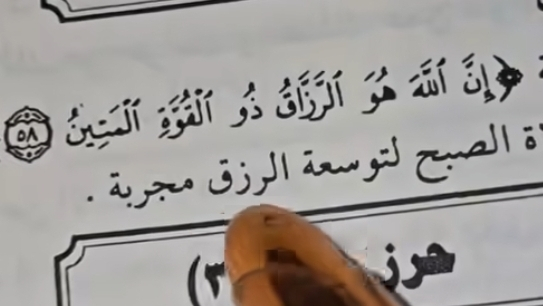 ﴿إِنَّ ٱللَّهَ هُوَ ٱلرَّزَّاقُ ذُو ٱلْقُوَّةِ ٱلْمَتِينُ ٥٨
الصبح لتوسعة الرزق مجربة .
حرز (٣